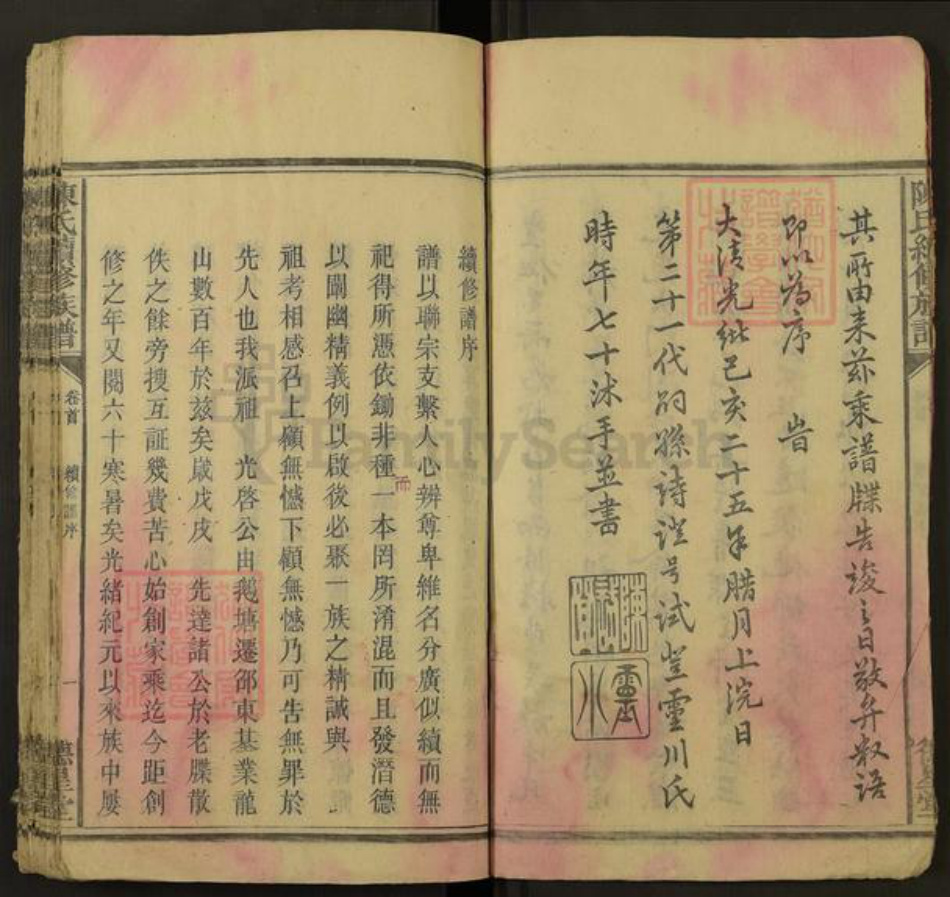 其所由来茲乘譜牒告竣之日敬弁数語
即以為序 旹
大清光緒己亥二十五年腊月上浣日
第二十一代嗣孫詩澄号試堂靈川氏
時年七十沐手並書
續修譜序
譜以聯宗支繫人心辨尊卑維名分廣似續而無
祀得所憑依鋤非種一本罔所淆混而且發潛德
以闡幽精義例以啟後必聚一族之精誠與
祖考相感召上顧無憾下顧無憾乃可告無罪於
先人也我派祖 光啓公由鵝塘遷邵東基業龍
山數百年於兹矣嵗戊戌 先達諸公於老牒散
佚之餘旁搜互証幾費苦心始創家乘迄今距創
修之年又閱六十寒暑矣光緒紀元以來族中屢
陳氏續修族譜
卷首
續修譜序
一
FamilySearch